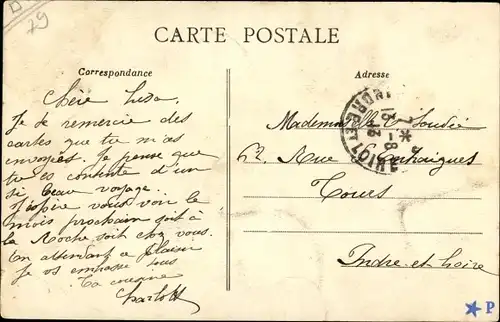 D
29
CARTE POSTALE
Correspondance
Adresse
Chère
Je te remercie des
cartes que tu m'as
envoyés. Je pense que
tu es contente d'un
si beau voyage.
J'espère vous voir le
mois prochain soit à
la Roche soit chez vous.
En attendant le plaisir
Je vs embrasse tous
Ta cousine
Charlott
Mademoiselle
Rue
Tours
Indre-et-Loire
INDRE ET LOIRE
* P